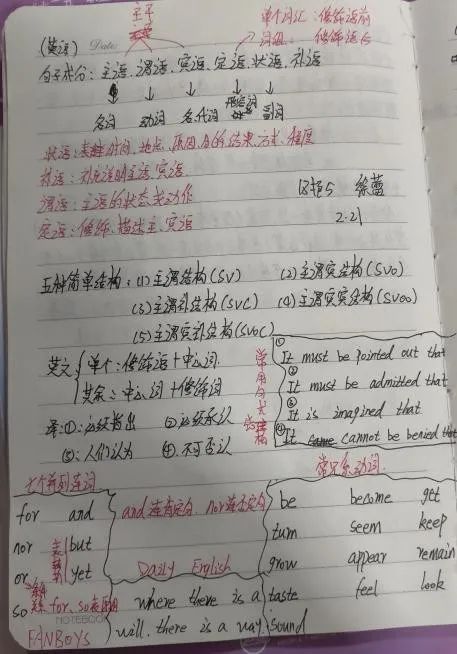 主干
单个词汇：修饰语前
词组：修饰语后
(英语) Date:
句子成分：主语、谓语、宾语、定语、状语、补语
名词 动词 名代词 形容词 副词
状语：表时间、地点、原因、目的、结果、方式、程度
补语：补充说明主语、宾语
谓语：主语的状态或动作
定语：修饰、描述主、宾语
2.21
五种简单结构：(1)主谓结构(SV) (2)主谓宾结构(SVO)
(3)主谓补结构(SVC) (4)主谓宾宾结构(SVOO)
(5)主谓宾补结构(SVOC)
英文 单个：修饰语+中心词
其余：中心词+修饰词
译：①：必须指出 ②必须承认
③：人们认为 ④.不可否认
常用句式结构
① It must be pointed out that
② It must be admitted that
③ It is imagined that
④ It cannot be benied that
七个并列连词
for and
nor but
or yet
so for、so表因果
FANBOYS
NOTEBOOK
and连肯定句，nor连否定句
Daily English
where there is a
will, there is a way
常见系动词
be become get
turn seem keep
grow appear remain
taste feel look
sound